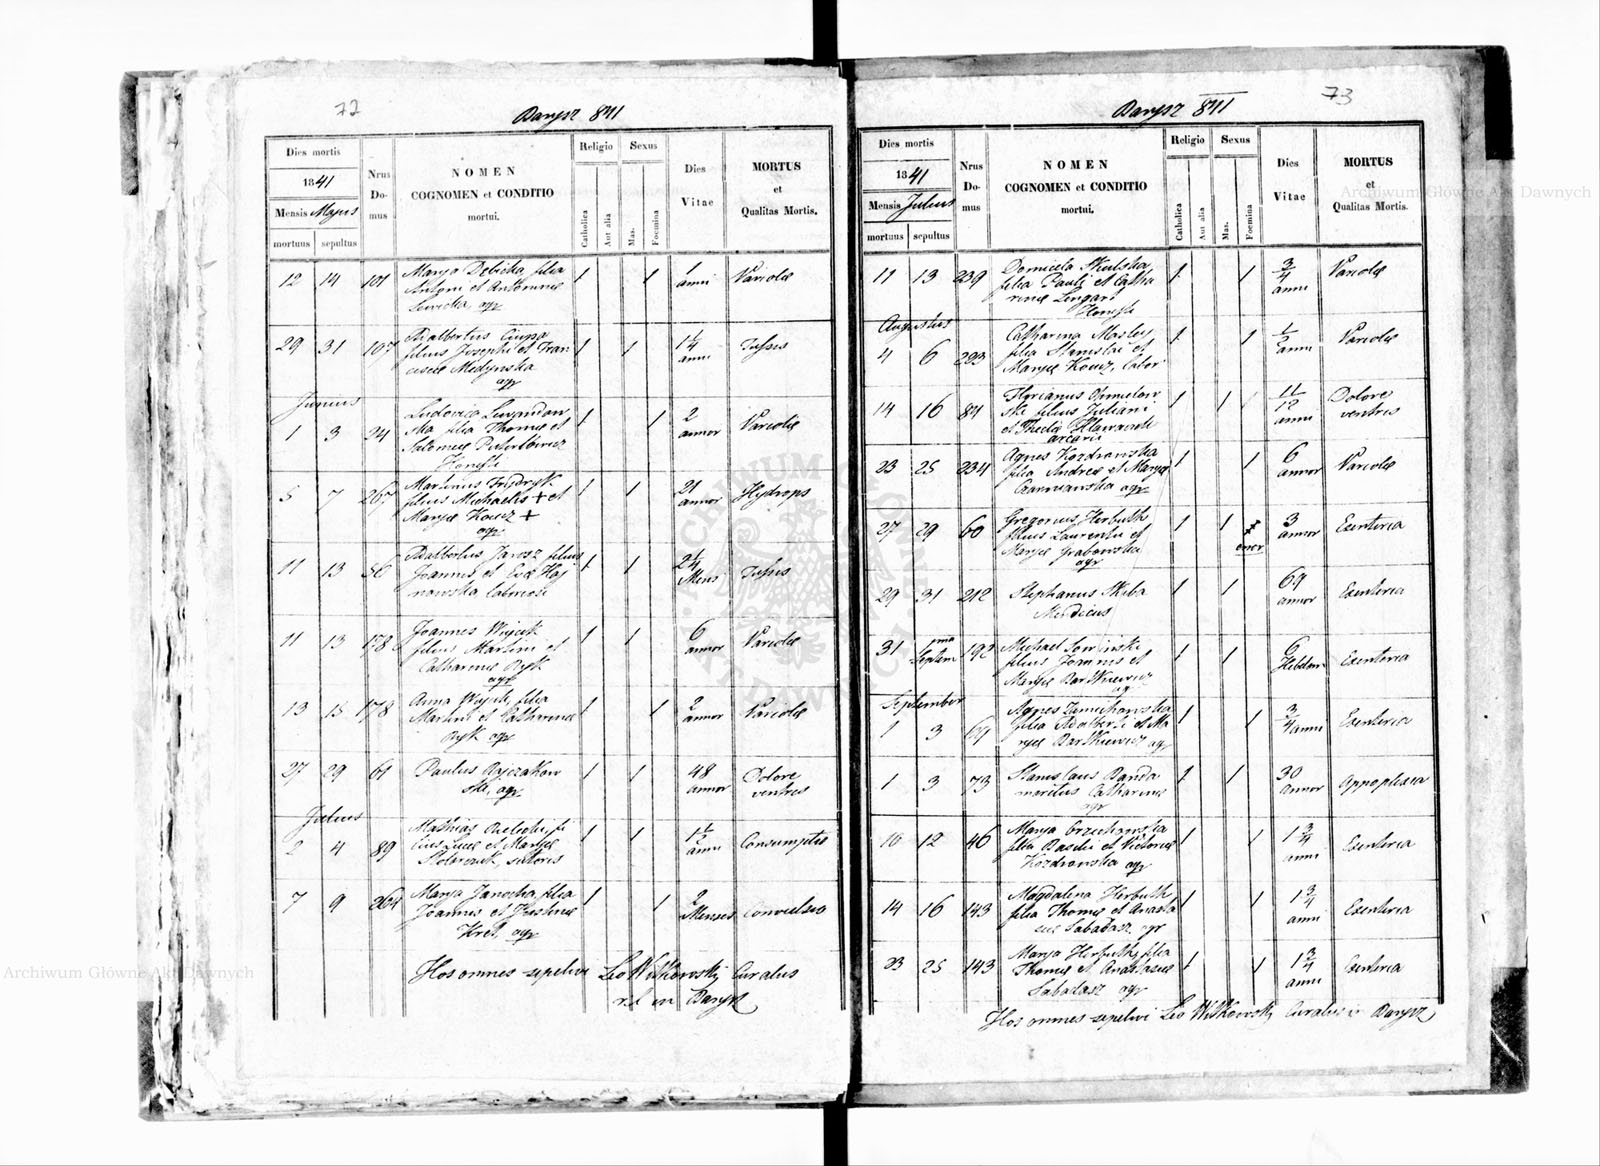 72
Barysz 841
Dies mortis
1841
Mensis Majus
mortuus
sepultus
Nrus
Do-
mus
NOMEN
COGNOMEN et CONDITIO
mortui.
Religio
Catholica
Aut alia
Sexus
Mas.
Foemina
Dies
Vitae
MORTUS
et
Qualitas Mortis.
12 14 101 Marya Debicka filia 1 1 1 Variolae
Antoni et Antoninae anni
Lewicka, agr
29 31 107 Adalbertus Ciupa 1 1 1 1/4 Tussis
filius Josephi et Fran anni
ciscae Medynska
agr
Junius
1 3 24 Ludovica Lewandow 1 1 2 Variolae
ska filia Thomae et annor
Salomeae
Honesti
5 7 267 Martinus Frydryk 1 1 21 Hydrops
filius Michaelis + et annor
Maryae Koucz +
agr
11 13 56 Adalbertus Jarosz filius 1 1 2 1/4 Tussis
Joannis et Evae Haj Mens
nowska laboriosi
11 13 178 Joannes Wojcik 1 1 6 Variolae
filius Martini et annor
Catharinae Ryk
agr
13 15 178 Anna Wojcik filia 1 1 2 Variolae
Martini et Catharinae annor
Ryk agr
27 29 61 Paulus Rajczakow 1 1 48 Dolore
ski, agr annor ventris
Julius
2 4 89 Mathias Bielecki, fi 1 1 1 1/2 Consumptio
lius Lucae et Maryae anni
sutoris
7 9 264 Marya Janocha filia 1 1 2 Convulsio
Joannis et Menses
Kret, agr
Hos omnes sepelivi Leo Witkowski Curatus
r.l. in Barysz
73
Barysz 841
Dies mortis
1841
Mensis Julius
mortuus
sepultus
Nrus
Do-
mus
NOMEN
COGNOMEN et CONDITIO
mortui.
Religio
Catholica
Aut alia
Sexus
Mas.
Foemina
Dies
Vitae
MORTUS
et
Qualitas Mortis.
11 13 239 Domicela Skulska 1 1 3/4 Variolae
filia Pauli et Catha anni
rinae
Honesti
Augustus
4 6 293 Catharina Masley 1 1 1/2 Variolae
filia Stanislai et anni
Maryae Koucz, labor
14 16 84 filius Juliani 1 1 11/12 Dolore
et Theclae anni ventris
23 25 234 Agnes Kozdrowska 1 1 6 Variolae
filia Andreae et Maryae annor
Czarwanska agr
27 29 60 Gregorius Herbuth 1 1 3 Exenteria
filius Laurentii et error annor
Maryae Grabowska
agr
29 31 212 Stephanus Skiba 1 1 69 Exenteria
Medicus annor
31 1ma 192 Michael Sowinski 1 1 6 Exenteria
Septem filius Joannis et Hebdom
Maryae Bartkiewicz
ag
September
1 3 Agnes 1 1 3/4 Exenteria
filia Adalberti et Ma anni
ryae Bartkiewicz agr
1 3 73 Stanislaus Banda 1 1 30 Appoplexia
maritus Catharinae annor
agr
10 12 46 Marya Orzechowska 1 1 1 3/4 Exenteria
filia Basilii et Victoriae anni
Kozdrowska agr
14 16 143 Magdalena Herbuth 1 1 1 3/4 Exenteria
filia Thomae et Anasta anni
siae Sabadasz agr
23 25 143 Marya Herbuth, filia 1 1 1 3/4 Exenteria
Thomae et Anastasiae anni
Sabadasz agr
Hos omnes sepelivi Leo Witkowski Curatus in Barysz
Archiwum Główne Akt Dawnych
Archiwum Główne Akt Dawnych